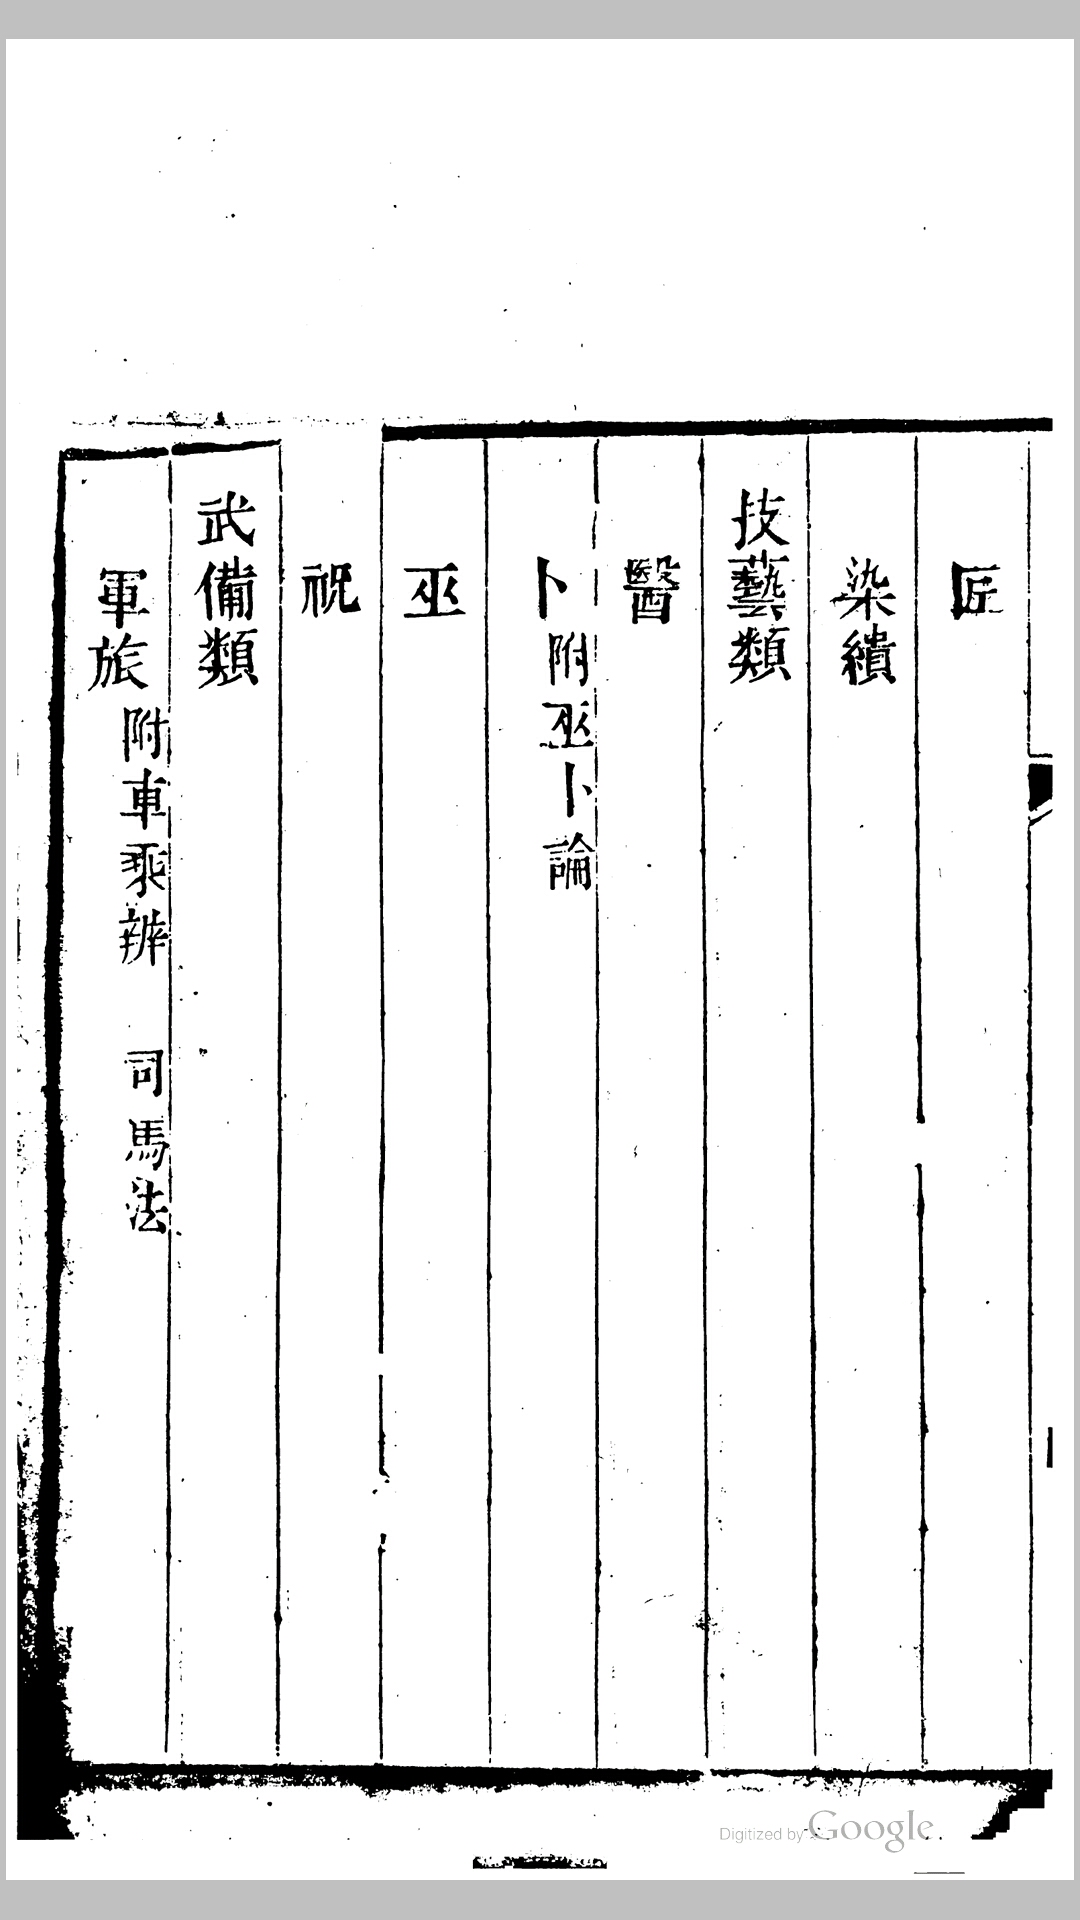 匠
染繢
技藝類
醫
卜附巫卜論
巫
祝
武備類
軍旅附車乘辨 司馬法
Digitized by Google